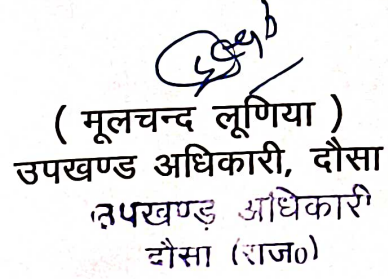 ( मूलचन्द लूणिया )
उपखण्ड अधिकारी, दौसा
उपखण्ड़ अधिकारी
दौसा (राज०)